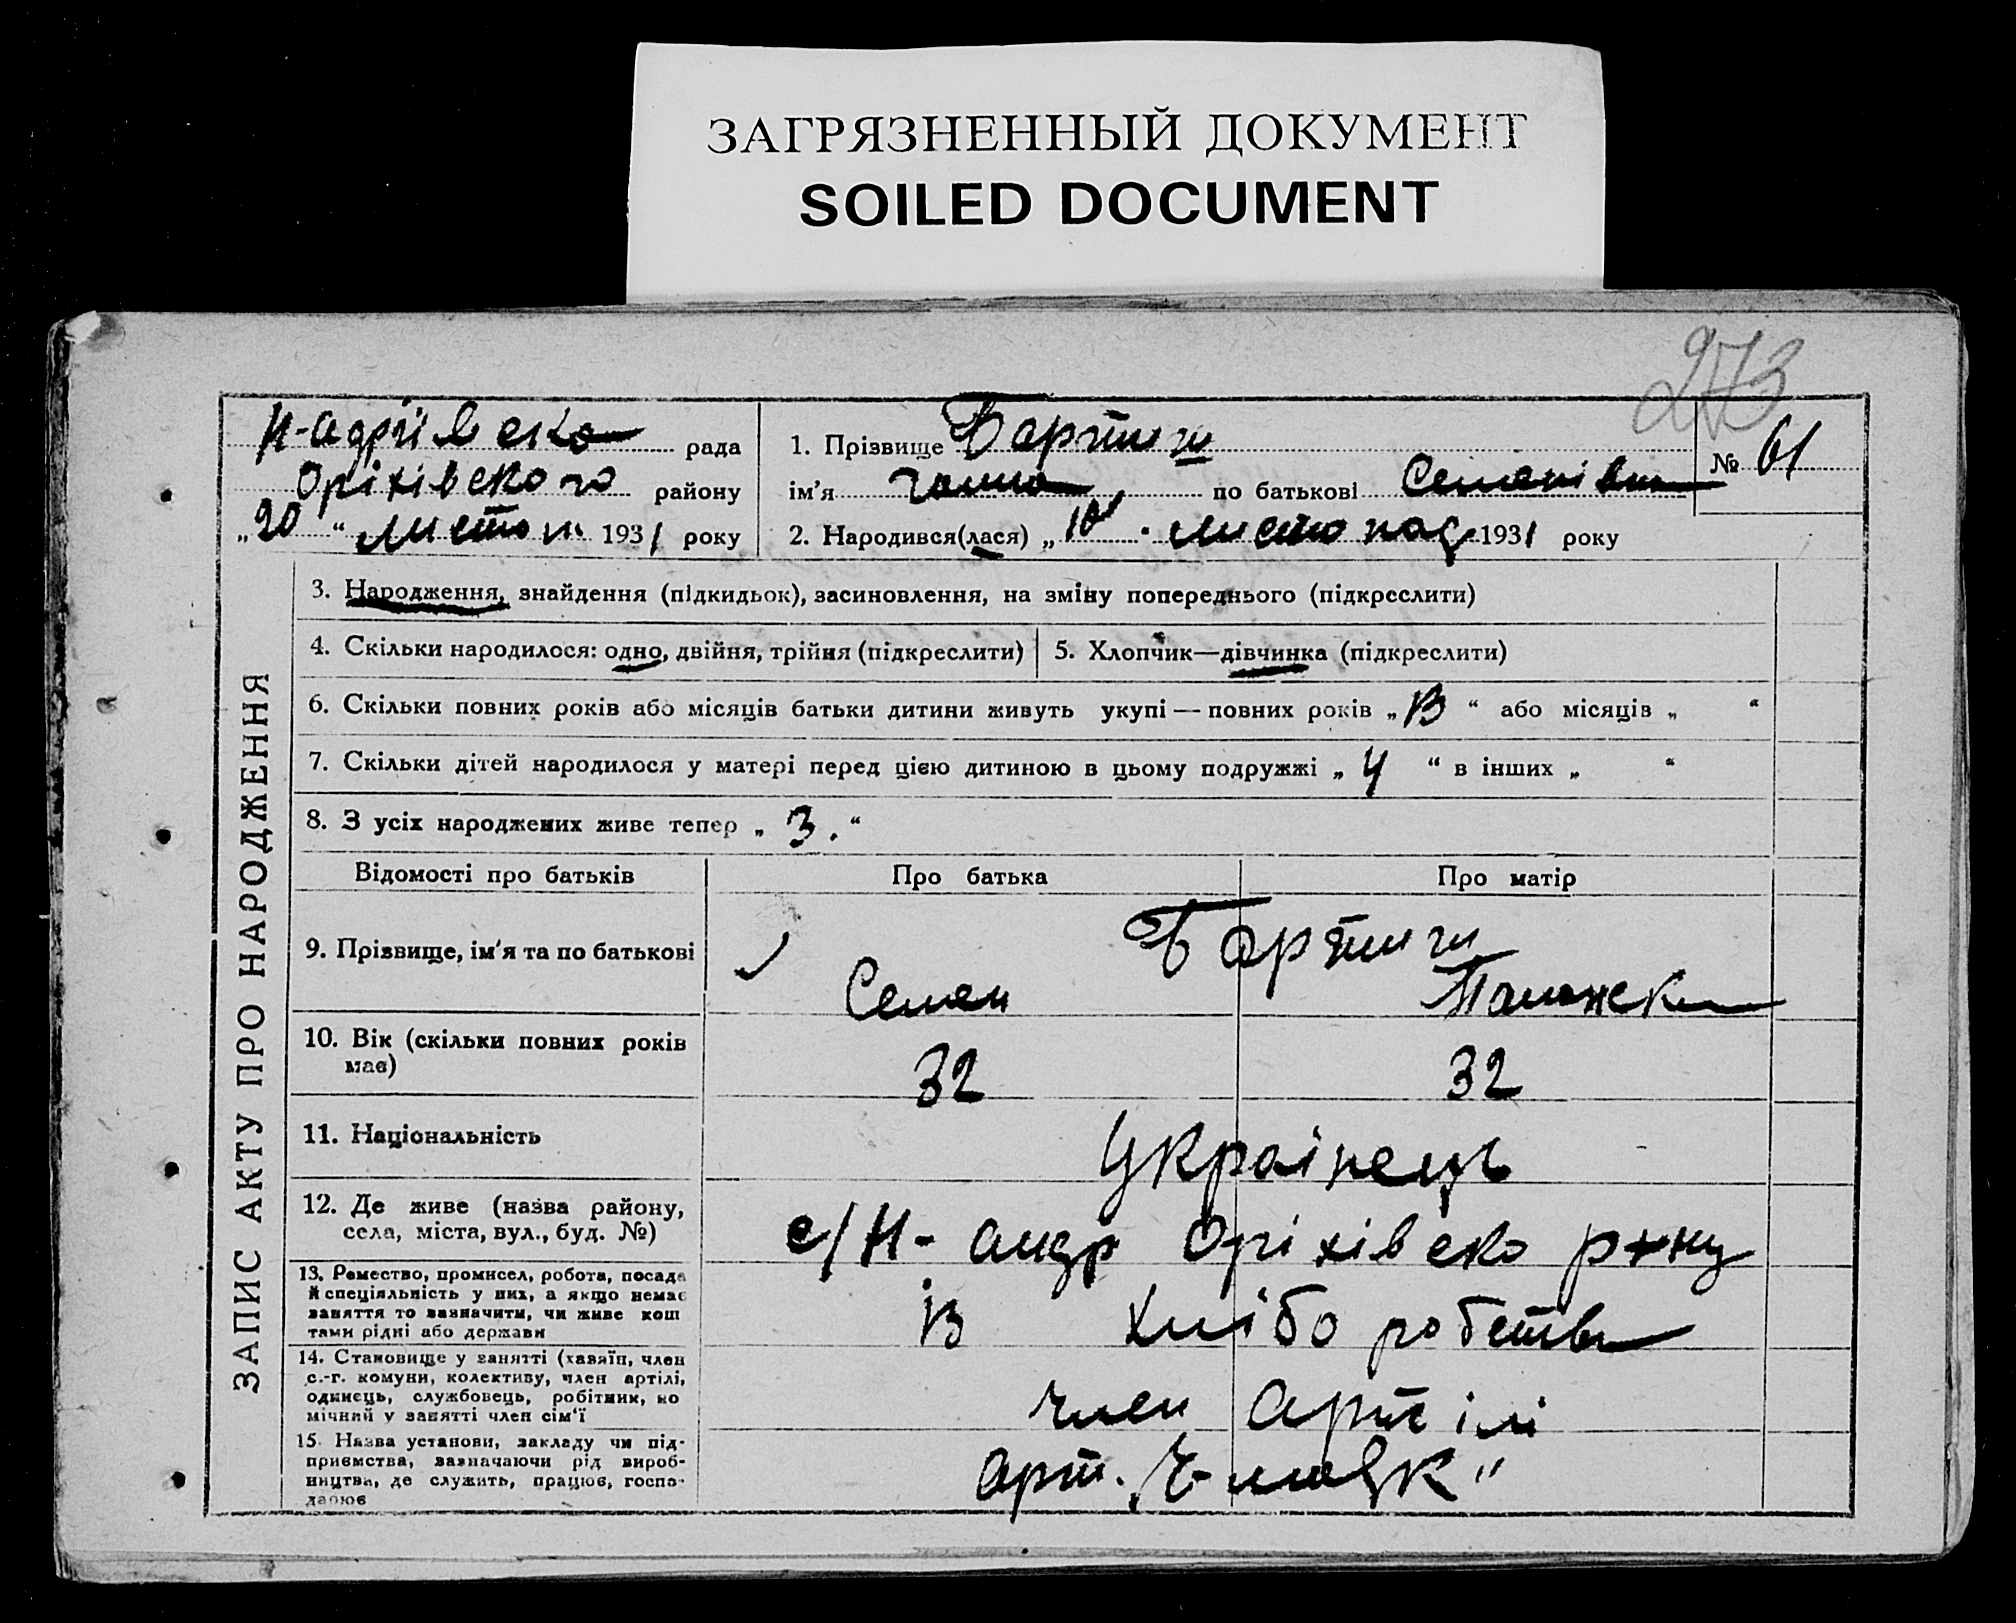 ЗАГРЯЗНЕННЫЙ ДОКУМЕНТ
SOILED DOCUMENT
273
Н-адріївсько рада
Оріхівского району
„20“ листоп. 1931 року
1. Прізвище
№ 61
ім’я Галина по батькові Семенівна
2. Народився(лася) „10“ листопад 1931 року
ЗАПИС АКТУ ПРО НАРОДЖЕННЯ
3. Народження, знайдення (підкидьок), засиновлення, на зміну попереднього (підкреслити)
4. Скільки народилося: одно, двійня, трійня (підкреслити)
5. Хлопчик—дівчинка (підкреслити)
6. Скільки повних років або місяців батьки дитини живуть укупі — повних років „13“ або місяців „ “
7. Скільки дітей народилося у матері перед цією дитиною в цьому подружжі „4“ в інших „ “
8. З усіх народжених живе тепер „3.“
Відомості про батьків
Про батька
Про матір
9. Прізвище, ім’я та по батькові
Семен
10. Вік (скільки повних років
має)
32
32
11. Національність
Українець
12. Де живе (назва району,
села, міста, вул., буд. №)
с/Н-андр Оріхівсько р-ну
13. Ремество, промисел, робота, посада
й спеціяльність у них, а якщо немає
заняття то зазначити, чи живе кош
тами рідні або держави
Хлібороб
14. Становище у занятті (хазяїн, член
с.-г. комуни, колективу, член артілі,
одинець, службовець, робітник, по
мічний у занятті член сім’ї
член артілі
15. Назва установи, закладу чи під-
приємства, зазначаючи рід вироб-
ництва, де служить, працює, госпо-
дарює
арт.